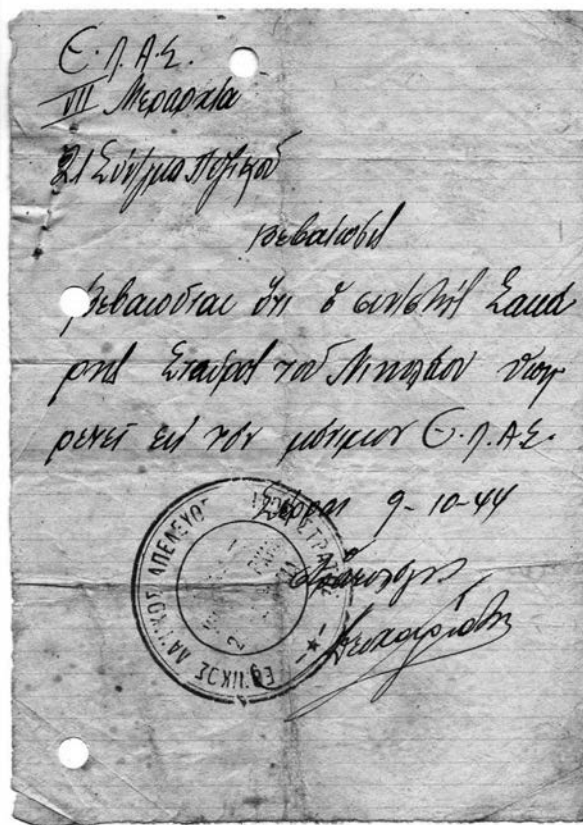 Ε.Λ.Α.Σ.
VII Μεραρχία
21 Σύν/γμα Πεζικού
Βεβαίωσις
Βεβαιούται ότι ο συν/στής Σακά
ρης Σταύρος του Νικολάου υπη
ρετεί εις τον μόνιμον Ε.Λ.Α.Σ.
Σέρραι 9-10-44
ΕΘΝΙΚΟΣ ΛΑΪΚΟΣ ΑΠΕΛΕΥΘ ΣΤΡΑΤΟΣ